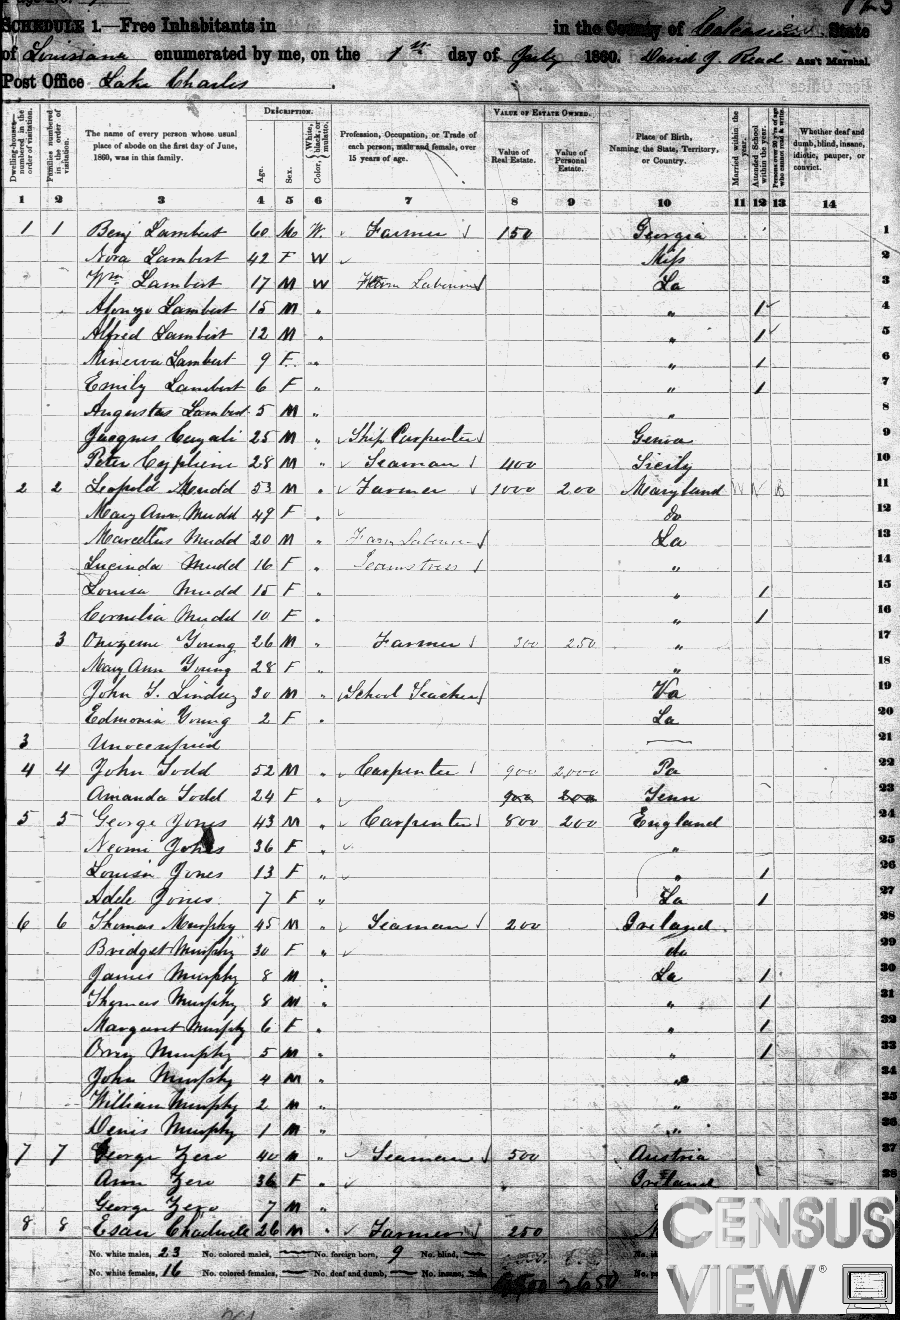 SCHEDULE 1.—Free Inhabitants in in the County of Calcasieu State
of Louisiana enumerated by me, on the 1st day of July 1860. David J. Read Ass't Marshal.
Post Office Lake Charles
Dwelling-houses—numbered in the order of visitation.
Families numbered in the order of visitation.
The name of every person whose usual place of abode on the first day of June, 1860, was in this family.
DESCRIPTION.
Age.
Sex.
Color, White, black, or mulatto.
Profession, Occupation, or Trade of each person, male and female, over 15 years of age.
VALUE OF ESTATE OWNED.
Value of Real Estate.
Value of Personal Estate.
Place of Birth, Naming the State, Territory, or Country.
Married within the year.
Attended School within the year.
Persons over 20 y'rs of age who cannot read & write.
Whether deaf and dumb, blind, insane, idiotic, pauper, or convict.
1 2 3 4 5 6 7 8 9 10 11 12 13 14
1 1 Benj Lambert 60 M W. Farmer 150 Georgia 1
Nora Lambert 42 F W Miss 2
Wm Lambert 17 M W Farm Laborer La 3
Alonzo Lambert 15 M " " 1 4
Alfred Lambert 12 M " " 1 5
Minerva Lambert 9 F " " 1 6
Emily Lambert 6 F " " 1 7
Augustus Lambert 5 M " " 8
Jacques 25 M " Ship Carpenter Genoa 9
Peter 28 M " Seaman 400 Sicily 10
2 2 Leopold Mudd 53 M " Farmer 1000 200 Maryland 11
Mary Ann Mudd 49 F " do 12
Marcellus Mudd 20 M " Farm Laborer La 13
Lucinda Mudd 16 F " Seamstress " 14
Louisa Mudd 15 F " " 1 15
Cornelia Mudd 10 F " " 1 16
3 Onezime Young 26 M " Farmer 300 250 " 17
Mary Ann Young 28 F " " 18
John T. Lindsey 30 M " School Teacher Va 19
Edmonia Young 2 F " La 20
3 Unoccupied 21
4 4 John Todd 52 M " Carpenter 900 2,000 Pa 22
Amanda Todd 24 F " 900 200 Tenn 23
5 5 George Jones 43 M " Carpenter 800 200 England 24
Neomi Jones 36 F " " 25
Louisa Jones 13 F " " 1 26
Adele Jones 7 F " La 1 27
6 6 Thomas Murphy 45 M " Seaman 200 Ireland 28
Bridget Murphy 30 F " do 29
James Murphy 8 M " La 1 30
Thomas Murphy 8 M " " 1 31
Margaret Murphy 6 F " " 1 32
Murphy 5 M " " 1 33
John Murphy 4 M " " 34
William Murphy 2 M " " 35
Denis Murphy 1 M " " 36
7 7 George Zero 40 M " Seaman 500 Austria 37
Ann Zero 36 F " Ireland 38
George Zero 7 M "
8 8 Esau 26 M " Farmer 250
No. white males, 23 No. colored males, No. foreign born, 9 No. blind,
No. white females, 16 No. colored females, No. deaf and dumb, No. insane, 2650
CENSUS
VIEW®